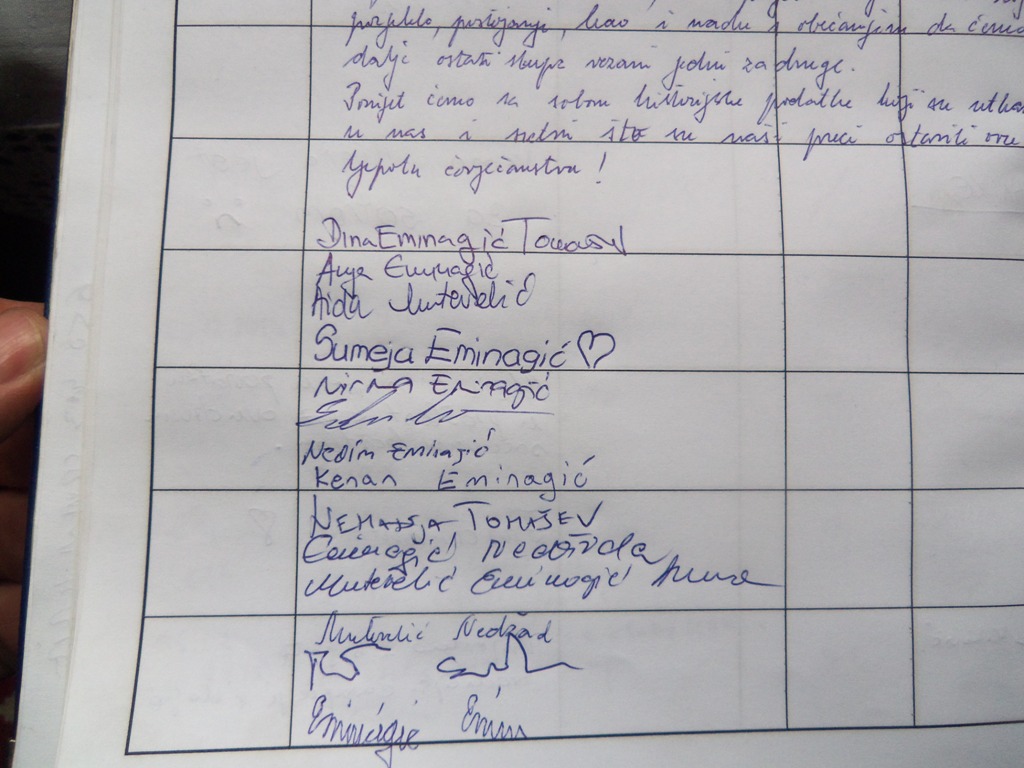 postojanje, kao i nadu s obećanjem da ćemo
dalje ostati skupa vezani jedni za druge.
Ponijet ćemo sa sobom historijske podatke koji su utkani
u nas i sretni što su naši preci ostavili ovu
ljepotu čovječanstvu!
Dina Eminagić Tomašev
Anja Eminagić
Aida Mutevelić
Sumeja Eminagić
Nirma Eminagić
Nedim Eminagić
Kenan Eminagić
NEMANJA TOMAŠEV
Eminagić Nedžida
Mutevelić Eminagić
Mutevelić Nedžad
Eminagić Emina